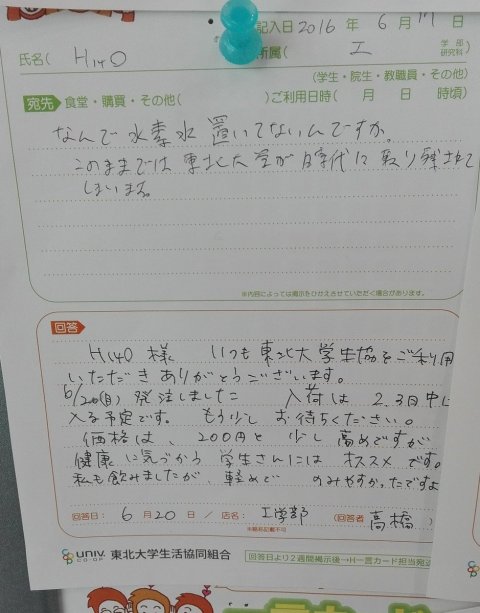 記入日 2016 年 6 月 17 日
氏名( H14O 所属( 工 学部 研究科)
(学生・院生・教職員・その他)
宛先 食堂・購買・その他( )ご利用日時( 月 日 時頃)
なんで水素水置いてないんですか。
このままでは東北大学が時代に取り残されて
しまいます。
※内容によっては掲示をひかえさせていただく場合があります。
回答
H14O 様 いつも東北大学生協をご利用
いただきありがとうございます。
6/20(月)発注しました 入荷は 2.3日中に
入る予定です。もう少しお待ちください。
価格は、200円と少し高めですが
健康に気づかう学生さんにはオススメです。
私も飲みましたが、軽めで のみやすかったですよ
回答日: 6 月 20 日 / 店名: 工学部 (回答者 高橋 )
※略称記載不可
univ. CO-OP 東北大学生活協同組合 回答日より2週間掲示後→H一言カード担当宛